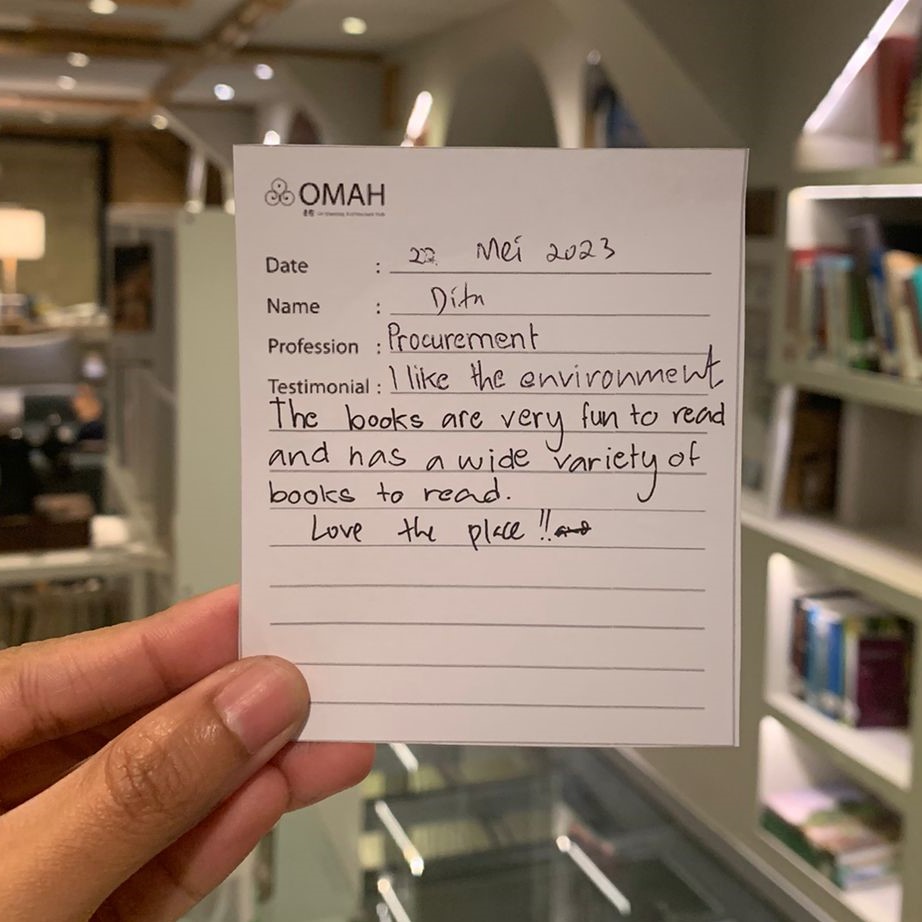 OMAH
Date : 22 Mei 2023
Name : Dita
Profession : Procurement
Testimonial : I like the environment
The books are very fun to read
and has a wide variety of
books to read.
Love the place !!